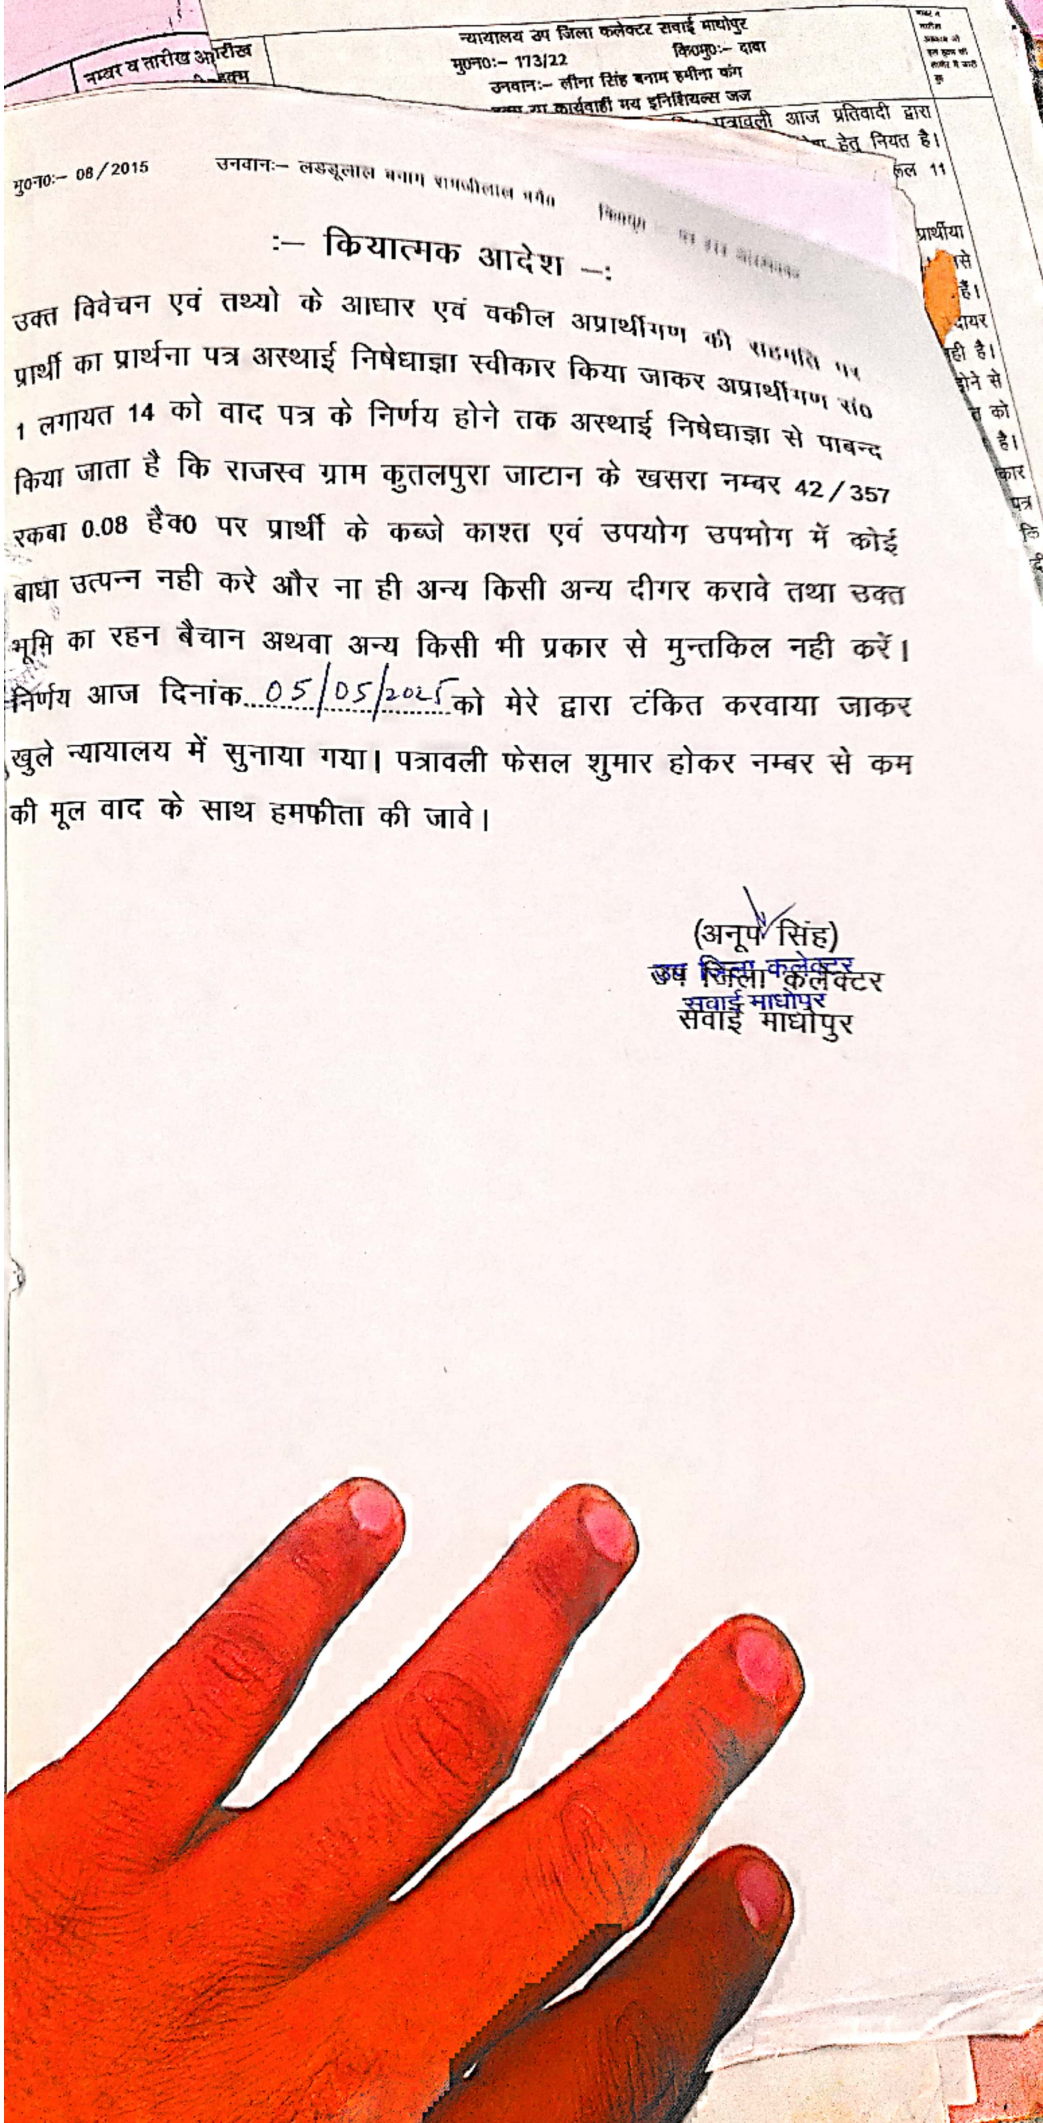 न्यायालय उप जिला कलेक्टर सवाई माधोपुर
मु0न0:– 173/22 कि0मु0:– दावा
उनवान:– लीना सिंह बनाम हमीना कंग
या कार्यवाही मय इनिशियल्स जज
नम्बर व तारीख
तारीख
हुक्म
पत्रावली आज प्रतिवादी द्वारा
हेतु नियत है।
11
प्रार्थीया
से
है।
दायर
ही है।
होने से
को
है।
कार
पत्र
कि
मु0न0:– 06/2015 उनवान:– लडडूलाल बनाम रामजीलाल वगै0
:– कियात्मक आदेश –:
उक्त विवेचन एवं तथ्यो के आधार एवं वकील अप्रार्थीगण की सहमति पर
प्रार्थी का प्रार्थना पत्र अस्थाई निषेधाज्ञा स्वीकार किया जाकर अप्रार्थीगण सं0
1 लगायत 14 को वाद पत्र के निर्णय होने तक अस्थाई निषेधाज्ञा से पाबन्द
किया जाता है कि राजस्व ग्राम कुतलपुरा जाटान के खसरा नम्बर 42/357
रकबा 0.08 हैक्0 पर प्रार्थी के कब्जे काश्त एवं उपयोग उपभोग में कोई
बाधा उत्पन्न नही करे और ना ही अन्य किसी अन्य दीगर करावे तथा उक्त
भूमि का रहन बैचान अथवा अन्य किसी भी प्रकार से मुन्तकिल नही करें।
निर्णय आज दिनांक 05/05/2025 को मेरे द्वारा टंकित करवाया जाकर
खुले न्यायालय में सुनाया गया। पत्रावली फेसल शुमार होकर नम्बर से कम
की मूल वाद के साथ हमफीता की जावे।
(अनूप सिंह)
उप जिला कलेक्टर
उप जिला कलेक्टर
सवाई माधोपुर
सवाई माधोपुर